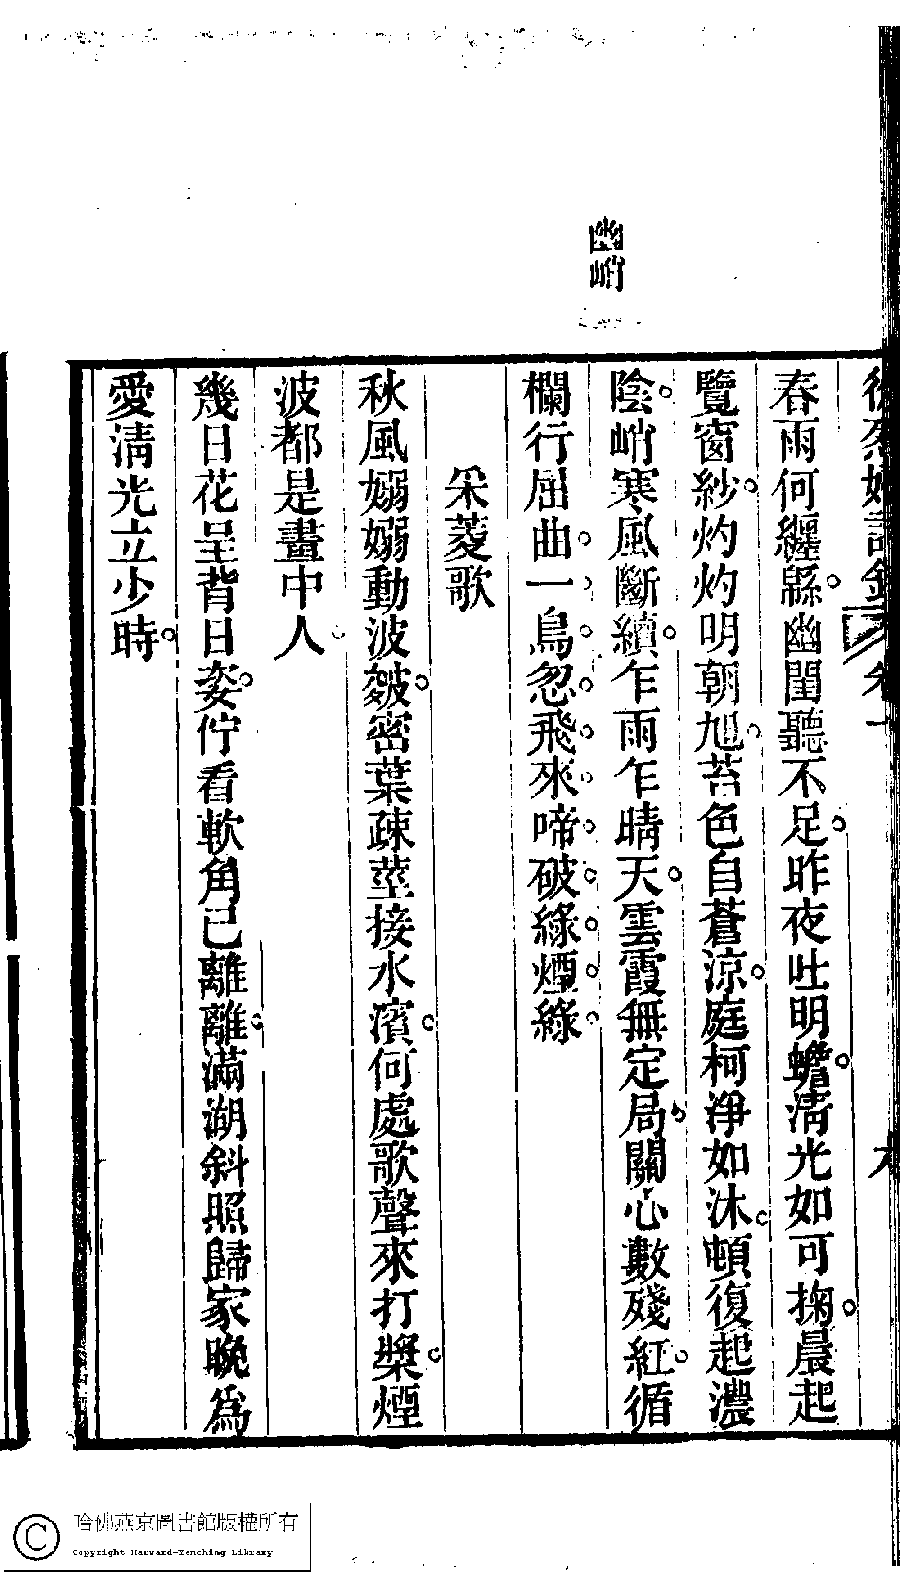 幽峭
春雨何纒緜幽閨聽不足昨夜吐明蟾淸光如可掬晨起
覽窗紗灼灼明朝旭苔色自蒼涼庭柯淨如沐頓復起濃
陰峭寒風斷續乍雨乍晴天雲霞無定局關心數殘紅循
欄行屈曲一鳥忽飛來啼破綠煙綠
采菱歌
秋風嫋嫋動波皴密葉疎莖接水濱何處歌聲來打槳煙
波都是畫中人
幾日花呈背日姿佇看軟角已離離滿湖斜照歸家晚為
愛淸光立少時
哈佛燕京圖書館版權所有
Copyright Harvard-Yenching Library